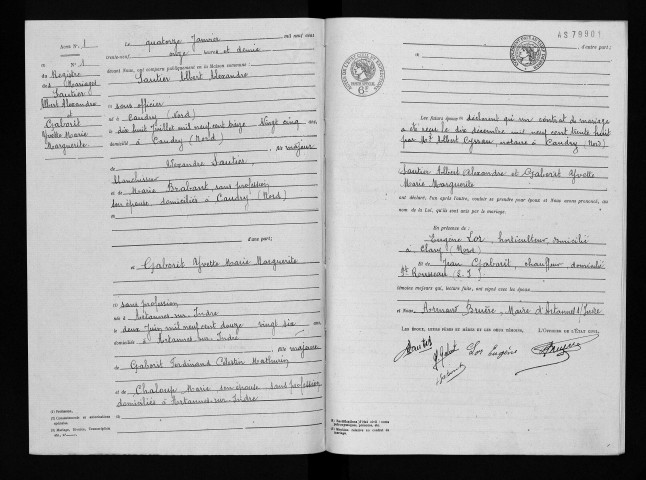 Acte N.° 1
N° 1
du Registre
des Mariages
Sautier
Albert Alexandre
et
Gaborit
Yvette Marie
Marguerite
Le quatorze Janvier mil neuf cent
trente-neuf onze heures et demie
devant Nous, ont comparu publiquement en la Maison commune
Sautier Albert Alexandre
sous officier
né à Caudry (Nord)
le dix huit Juillet mil neuf cent treize vingt cinq ans,
domicilié à Caudry (Nord)
fils majeur
de Alexandre Sautier,
blanchisseur
et de Marie Brabant sans profession
son épouse domiciliés à Caudry (Nord)
d'une part;
et Gaborit Yvette Marie Marguerite
sans profession
née à Artannes sur Indre
le deux Juin mil neuf cent douze vingt six ans,
domiciliée à Artannes sur Indre
fille majeure
de Gaborit Ferdinand Célestin Mathurin
et de Chaloup Marie son épouse sans profession
domiciliés à Artannes sur Indre
(1) Prénoms.
(2) Consentements et autorisations
(3) Mariage, Divorce, Transcription
AS 79901
6F
d'autre part;
Les futurs époux déclarent qu'un contrat de mariage
a été reçu le dix décembre mil neuf cent trente huit
par Me Albert notaire à Caudry (Nord)
Sautier Albert Alexandre et Gaborit Yvette
Marie Marguerite
ont déclaré, l'un après l'autre, vouloir se prendre pour époux et Nous avons prononcé, au
nom de la Loi, qu'ils sont unis par le mariage.
En présence de :
Eugène Lor, horticulteur, domicilié
à Clary (Nord)
Et de Jean Gaborit, chauffeur domicilié
témoins majeurs qui, lecture faite, ont signé avec les époux
et Nous Armand Bruère, Maire d'Artannes s/Indre
Les époux, L'Officier de l'État civil,
Sautier
Y Gaborit
Lor Eugène
Bruère